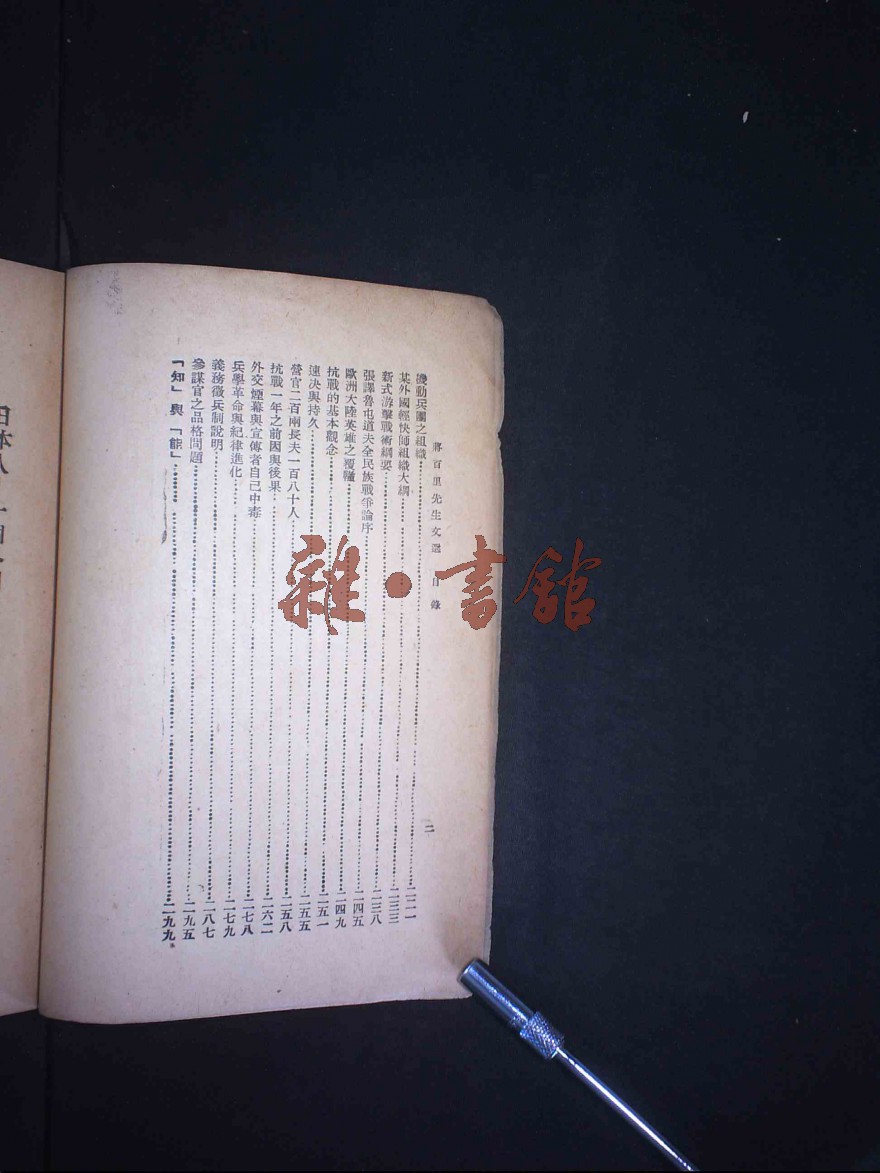 蔣百里先生文選 目錄
二
機動兵團之組織……二二一
某外國輕快師組織大綱……二三三
新式游擊戰術綱要……二三八
張譯魯屯道夫全民族戰爭論序……二四五
歐洲大陸英雄之覆轍……二四九
抗戰的基本觀念……二五一
速決與持久……二五五
營官二百兩長夫一百八十人……二五八
抗戰一年之前因與後果……二六二
外交煙幕與宣傳者自己中毒……二七八
兵學革命與紀律進化……二七九
義務徵兵制說明……二八七
參謀官之品格問題……二九五
「知」與「能」……二九九
雜·書館
日本人